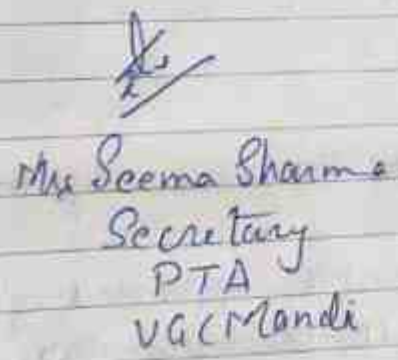 Mrs Seema Sharma
Secretary
PTA
VGC Mandi